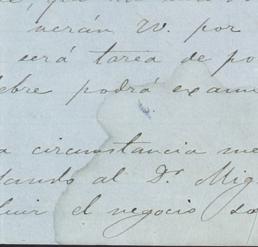 verán W. por
será tarea de po
ebre podrá exami
a circunstancia me
dando al Dr Mig
luir el negocio so